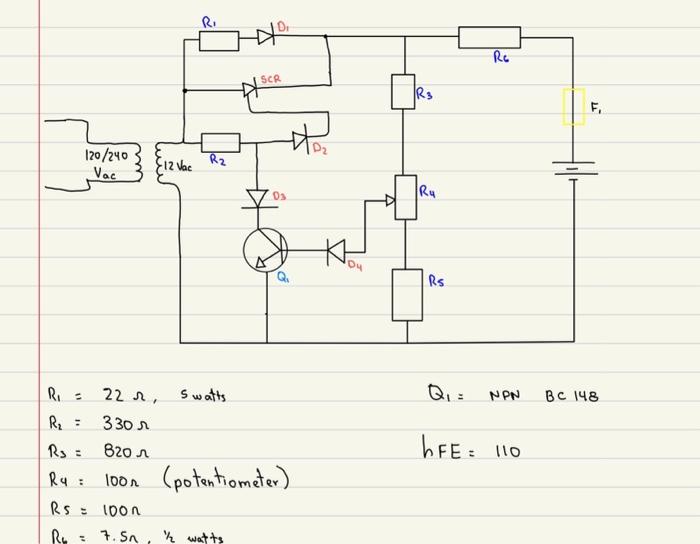 R1
D1
R6
SCR
R3
F1
120/240
Vac
12 Vac
R2
D2
D3
R4
D4
Q1
R5
R1 = 22 Ω, 5 watts
Q1 = NPN BC 148
R2 = 330 Ω
R3 = 820 Ω
hFE = 110
R4 = 100Ω (potentiometer)
R5 = 100Ω
R6 = 7.5Ω, ½ watts